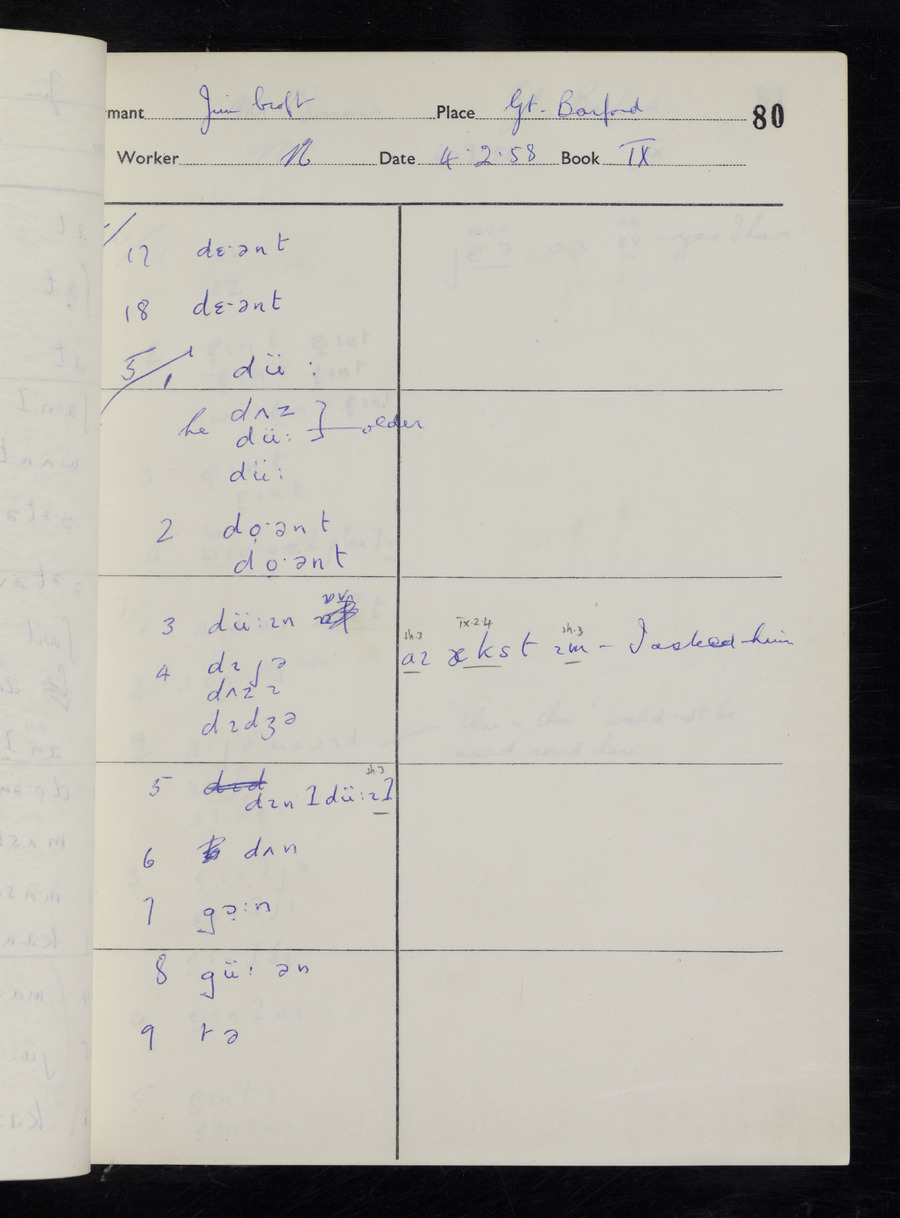 mant Jim Croft Place Gt. Barford 80
Worker N Date 4.2.58 Book IX
17 dɛ·ənt
18 dɛ·ənt
5/1 dü:
he dʌz } older
dü:
dü:
2 dọ·ənt
dọ·ənt
3 dü:ɪn
sh.3 IX.2.4 sh.3
aɪ ækst ɪm – I asked him
4 dɪʃə
dʌzɪ
dɪdʒə
sh.3
5 dɪd
dɪn I dü:ɪI
6 dʌn
7 gə:n
8 gü: ən
9 tə